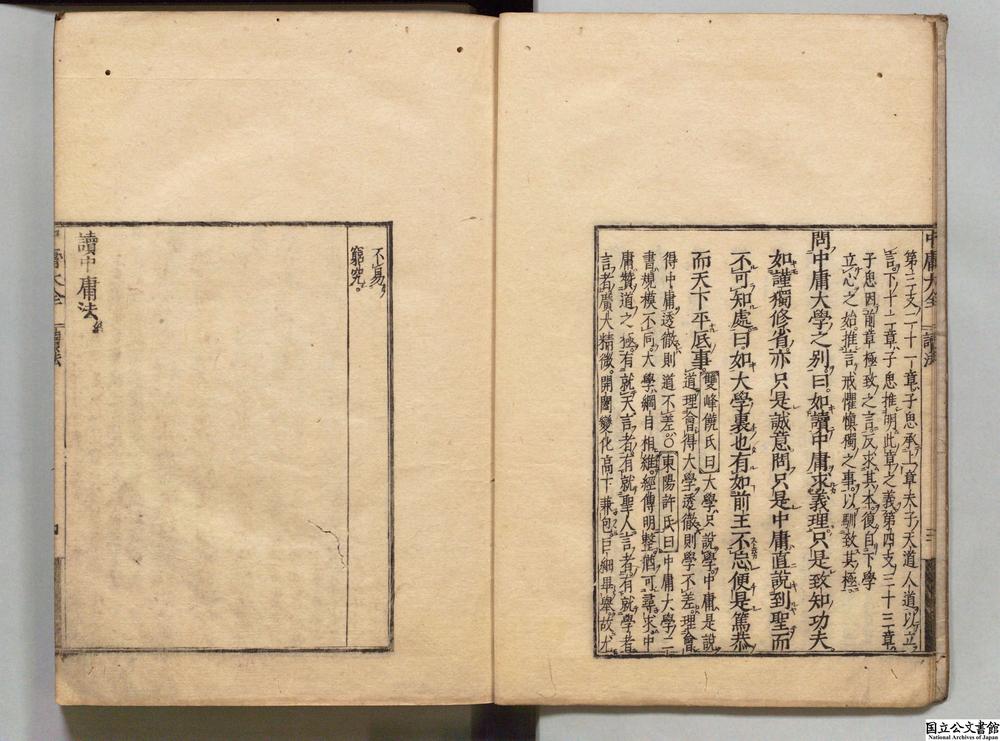 中庸大全 讀法 三
第三支二十一章子思承上章夫子天道人道以立
言下十二章子思推明此章之義第四支三十三章
子思因前章極致之言反求其本復自下學
立心之始推言戒懼慎獨之事以馴致其極
問中庸大學之别曰如讀中庸求義理只是致知功夫
如謹獨修省亦只是誠意問只是中庸直說到聖而
不可知處曰如大學裏也有如前王不忘便是篤恭
而天下平底事雙峰饒氏曰大學只說學中庸是說
道理會得大學透徹則學不差理會
得中庸透徹則道不差○東陽許氏曰中庸大學二
書規模不同大學綱目相維經傳明整猶可尋求中
庸贊道之極有就天言者有就聖人言者有就學者
言者廣大精微開闔變化高下兼包巨細畢舉故尤
不易
窮究
讀中庸法終
中庸大全 讀法 四
国立公文書館
National Archives of Japan